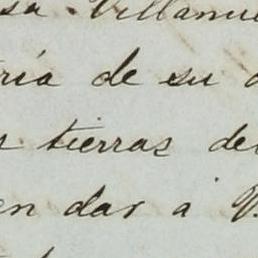 sa Villanu
ria de su
tierras de
en dar á V